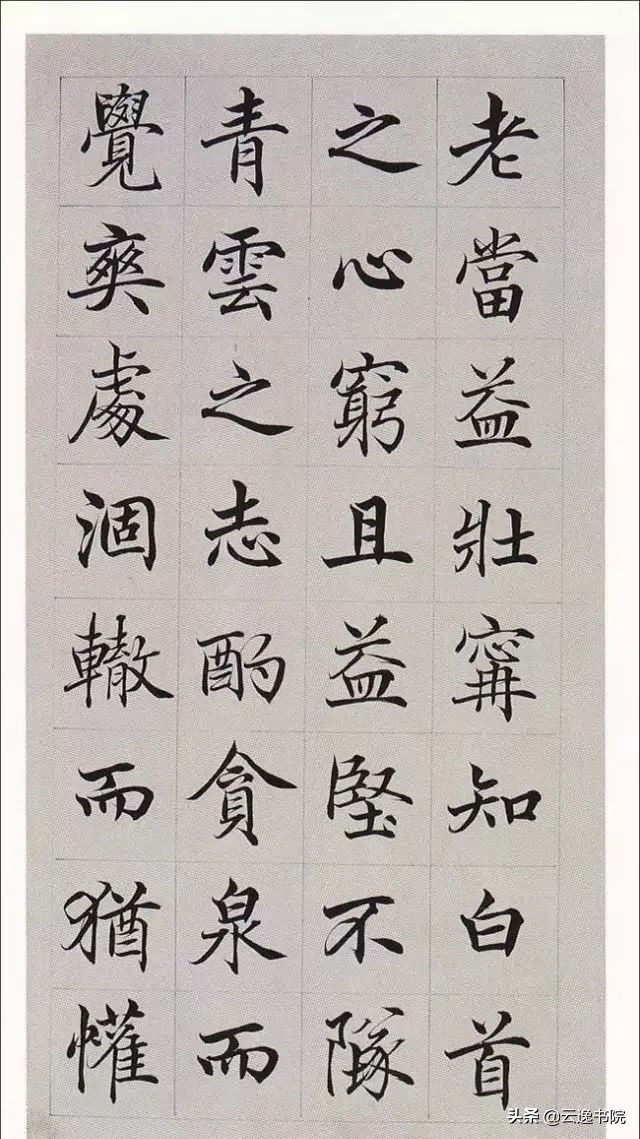 老當益壯寗知白首
之心窮且益堅不隊
青雲之志酌貪泉而
覺爽處涸轍而猶懽
头条 @云逸书院